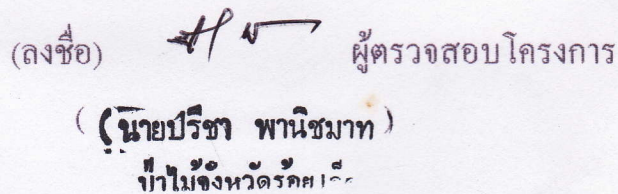 (ลงชื่อ) ผู้ตรวจสอบโครงการ
(นายปรีชา พานิชมาท)
ป่าไม้จังหวัดร้อยเอ็ด